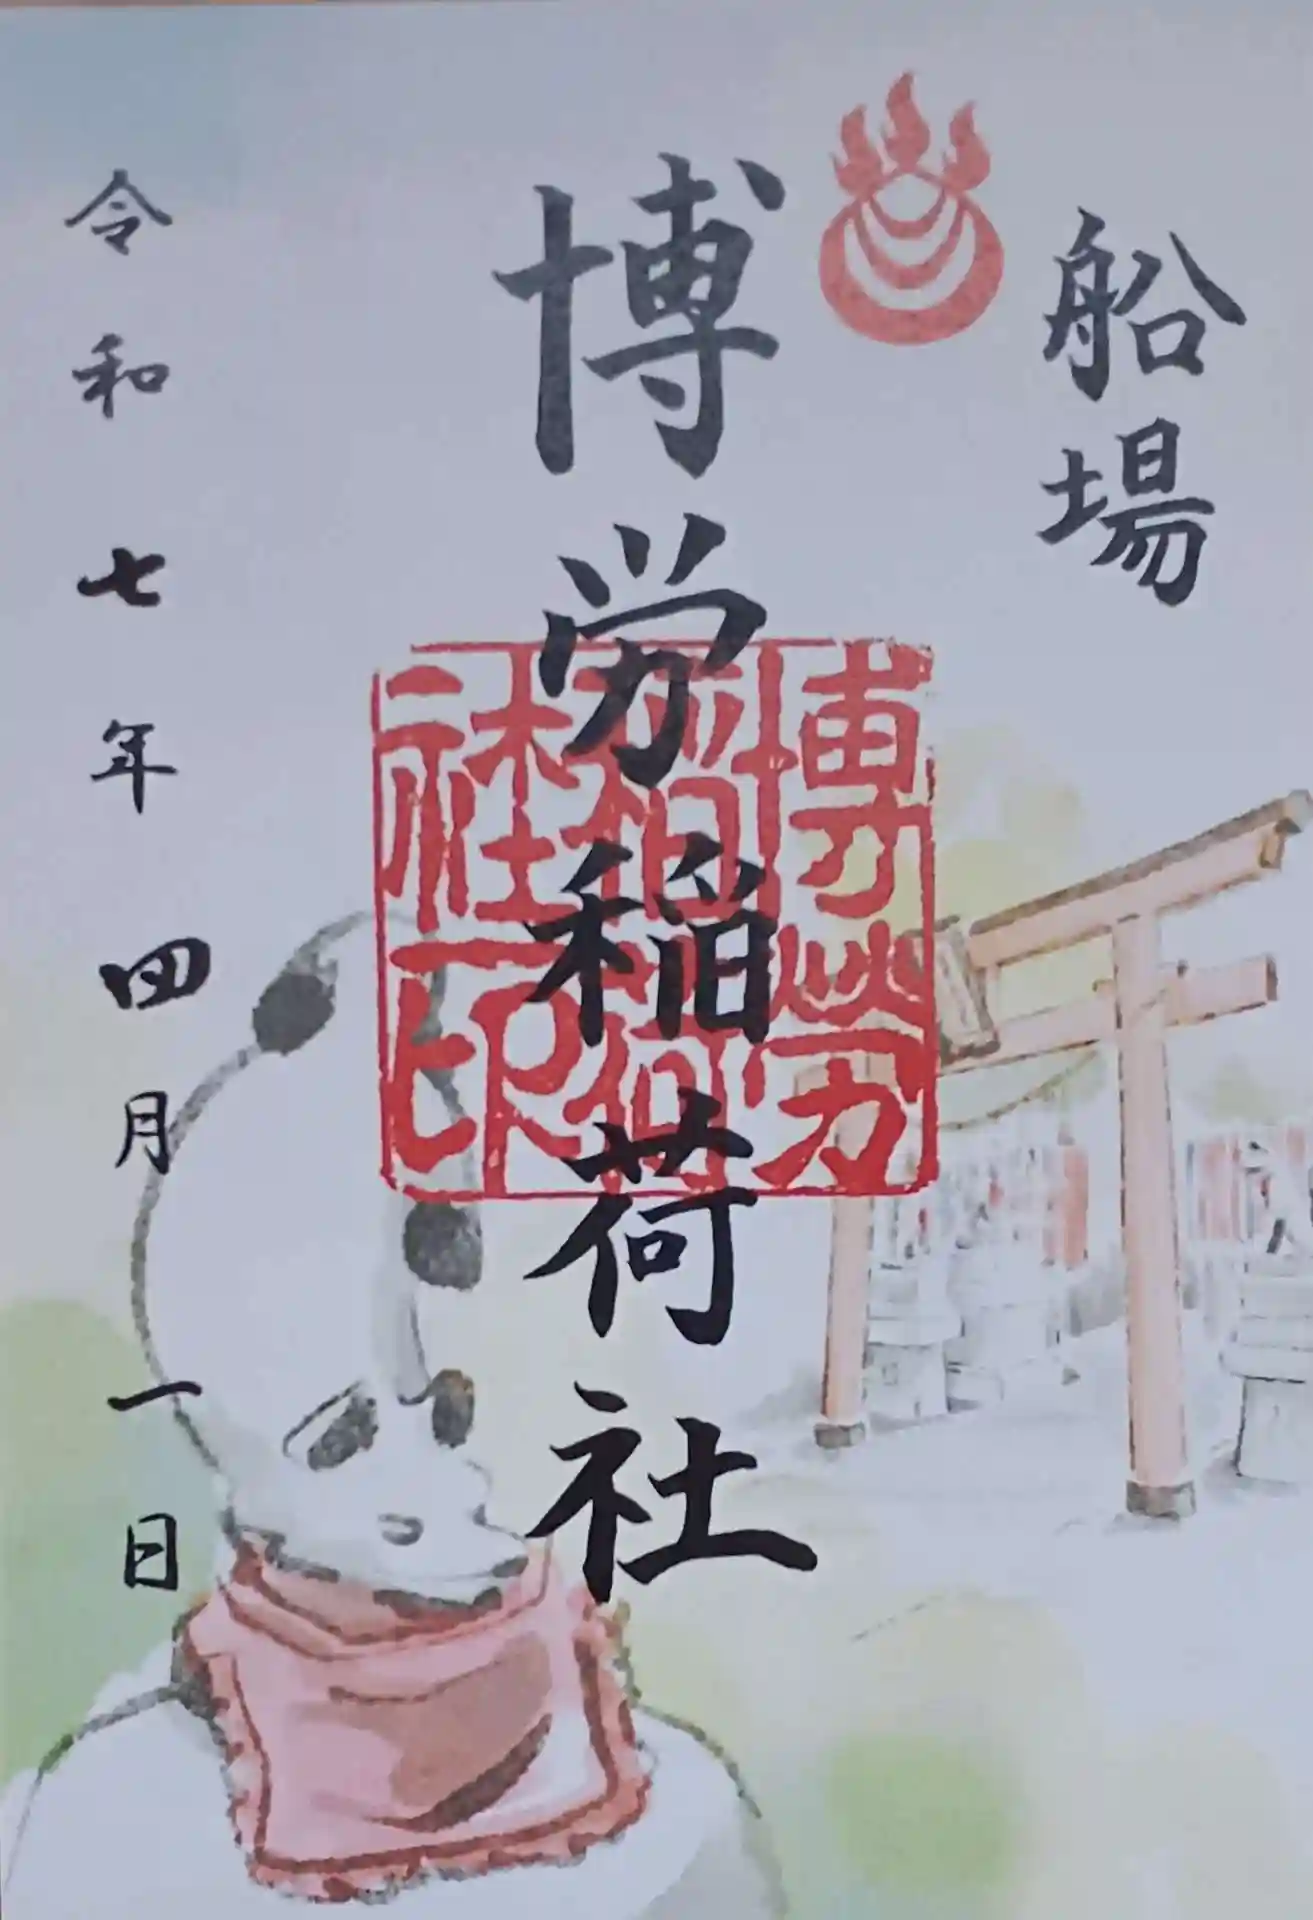 船場
博労稲荷社
博労稲荷社印
令和七年四月一日